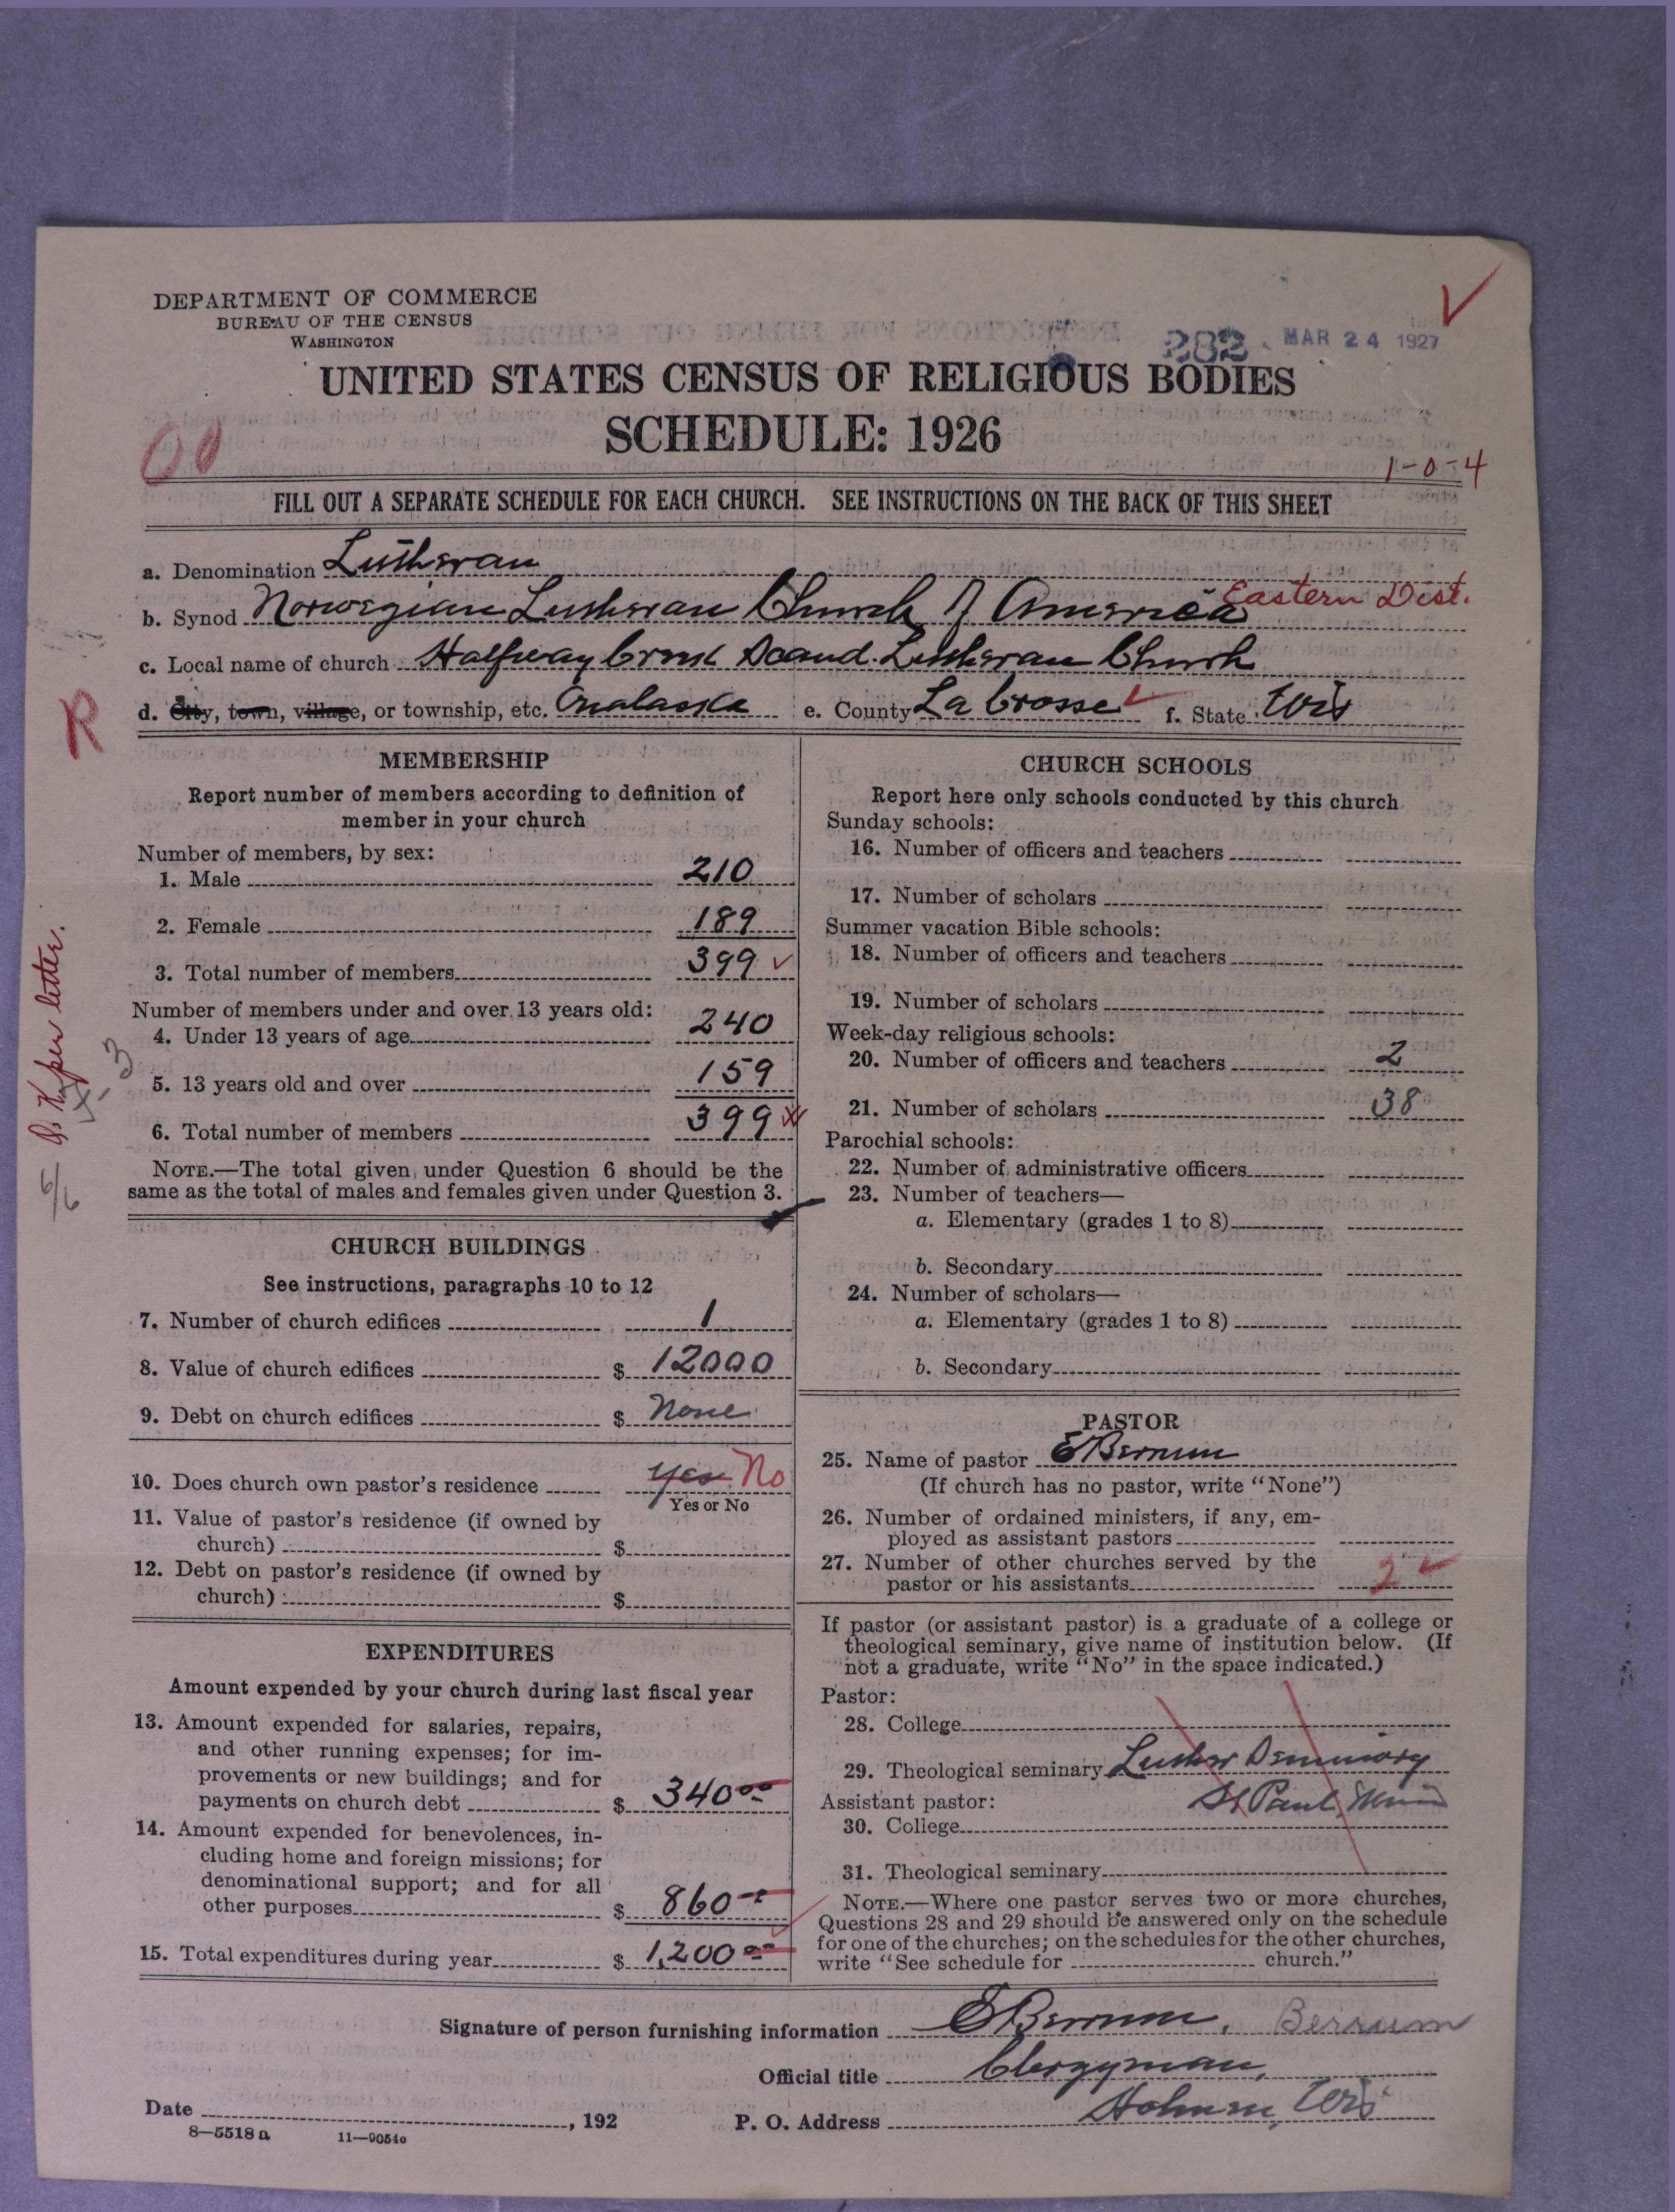 DEPARTMENT OF COMMERCE
BUREAU OF THE CENSUS
WASHINGTON
282 MAR 24 1927
UNITED STATES CENSUS OF RELIGIOUS BODIES
SCHEDULE: 1926
00
1-0-4
FILL OUT A SEPARATE SCHEDULE FOR EACH CHURCH. SEE INSTRUCTIONS ON THE BACK OF THIS SHEET
a. Denomination Lutheran
Eastern Dist.
b. Synod Norwegian Lutheran Church of America
c. Local name of church Halfway Creek Scand. Lutheran Church
d. City, town, village, or township, etc. Onalaska e. County La Crosse f. State Wis
R
MEMBERSHIP
Report number of members according to definition of
member in your church
Number of members, by sex:
1. Male 210
2. Female 189
3. Total number of members 399
Number of members under and over 13 years old:
4. Under 13 years of age 240
5. 13 years old and over 159
6. Total number of members 399
NOTE.—The total given under Question 6 should be the
same as the total of males and females given under Question 3.
per letter.
CHURCH BUILDINGS
See instructions, paragraphs 10 to 12
7. Number of church edifices 1
8. Value of church edifices $ 12000
9. Debt on church edifices $ None
10. Does church own pastor's residence Yes No
Yes or No
11. Value of pastor's residence (if owned by
church) $
12. Debt on pastor's residence (if owned by
church) $
EXPENDITURES
Amount expended by your church during last fiscal year
13. Amount expended for salaries, repairs,
and other running expenses; for im-
provements or new buildings; and for
payments on church debt $ 340.00
14. Amount expended for benevolences, in-
cluding home and foreign missions; for
denominational support; and for all
other purposes $ 860
15. Total expenditures during year $ 1,200.00
CHURCH SCHOOLS
Report here only schools conducted by this church
Sunday schools:
16. Number of officers and teachers
17. Number of scholars
Summer vacation Bible schools:
18. Number of officers and teachers
19. Number of scholars
Week-day religious schools:
20. Number of officers and teachers 2
21. Number of scholars 38
Parochial schools:
22. Number of administrative officers
23. Number of teachers—
a. Elementary (grades 1 to 8)
b. Secondary
24. Number of scholars—
a. Elementary (grades 1 to 8)
b. Secondary
PASTOR
25. Name of pastor E Berrum
(If church has no pastor, write "None")
26. Number of ordained ministers, if any, em-
ployed as assistant pastors
27. Number of other churches served by the
pastor or his assistants 2
If pastor (or assistant pastor) is a graduate of a college or
theological seminary, give name of institution below. (If
not a graduate, write "No" in the space indicated.)
Pastor:
28. College
29. Theological seminary Luther Seminary
St Paul, Minn
Assistant pastor:
30. College
31. Theological seminary
NOTE.—Where one pastor serves two or more churches,
Questions 28 and 29 should be answered only on the schedule
for one of the churches; on the schedules for the other churches,
write "See schedule for church."
Signature of person furnishing information E Berrum. Berrum
Official title Clergyman,
Date , 192 P. O. Address Holmen, Wis
8—5518a 11—9051e